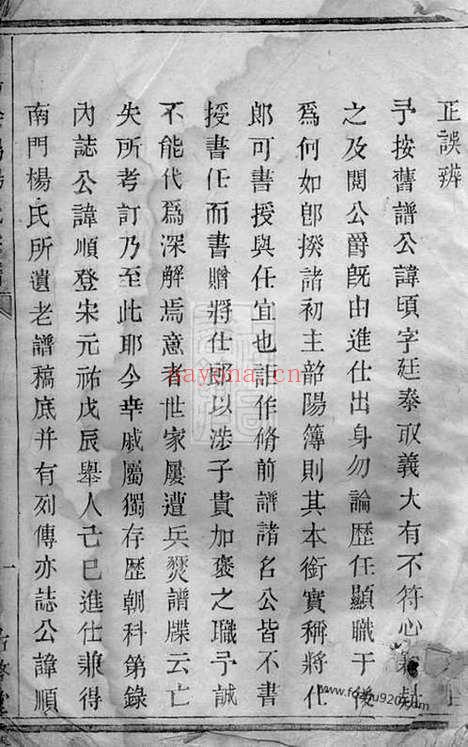 正誤辨
予按舊譜公諱頃字廷泰取義大有不符心
之及閱公爵旣由進仕出身勿論歷任顯職于後
爲何如卽揆諸初主韶陽簿則其本銜實稱將仕
郎可書授與任宜也詎作脩前譜諸名公皆不書
授書任而書贈將仕郎以涖子貴加褒之職予誠
不能代爲深解焉意者世家屢遭兵燹譜牒云亡
失所考訂乃至此耶今幸戚屬獨存歷朝科第錄
內誌公諱順登宋元祐戊辰舉人己巳進仕兼得
南門楊氏所遺老譜稿底并有列傳亦誌公諱順
一
nayona.cn